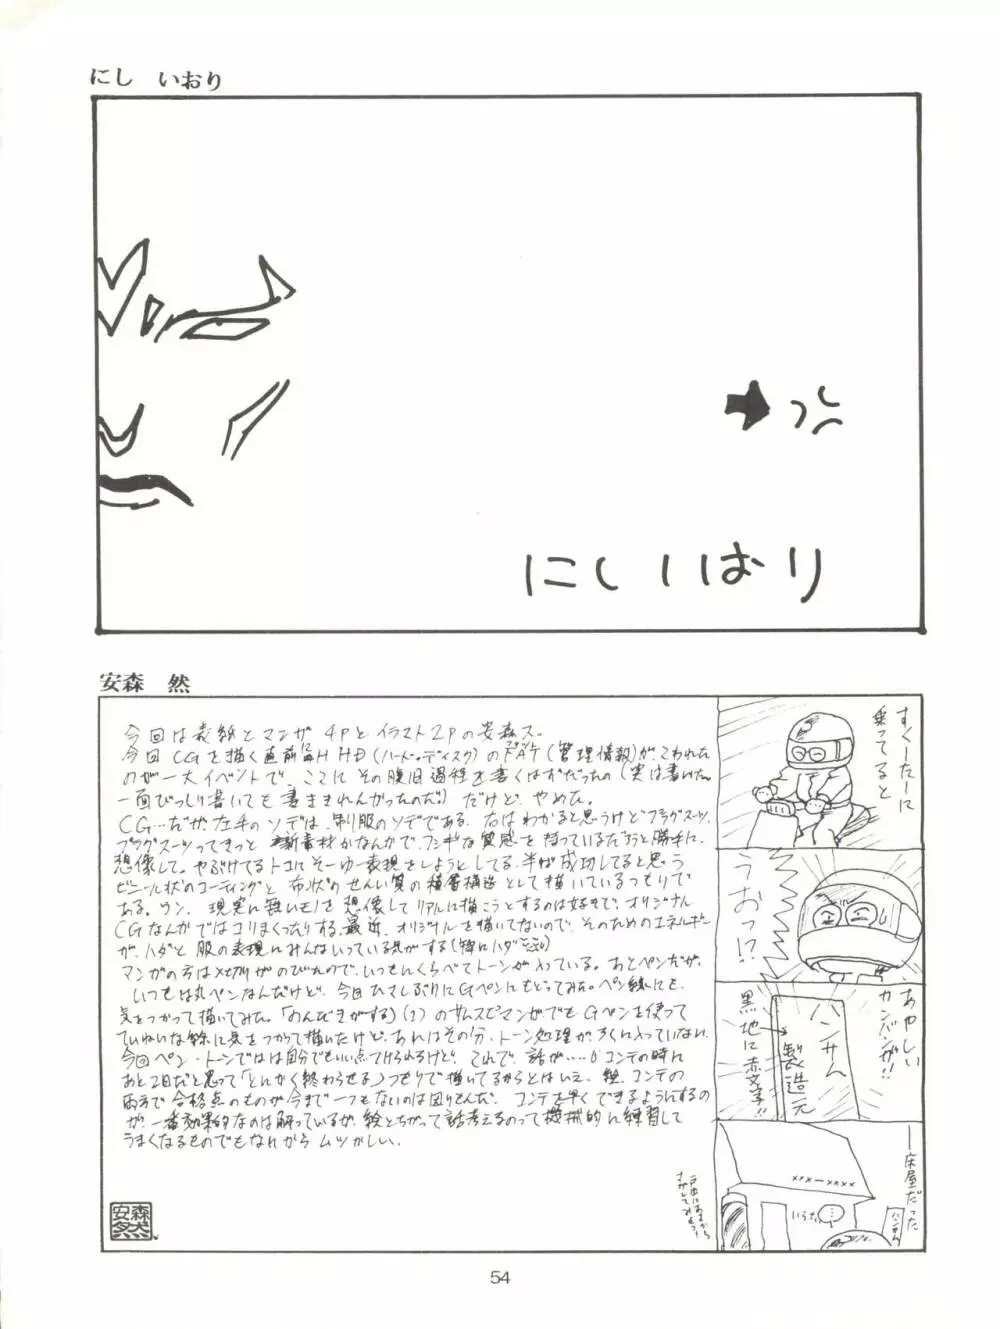 にし　いおり
にし いおり
安森　然
今回は表紙とマンガ4Pとイラスト2Pの安森ス。
今回CGを描く直前にHD(ハード・ディスク)のFAT(管理情報)がこわれた
のが一大イベントで、ここにその復旧過程を書くはずだったの(実は書いた。
一面びっしり書いても書ききれんかったのだ。)だけど、やめた。
CG…だが、左手のソデは、制服のソデである、右はわかると思うけどプラグスーツ、
プラグスーツってきっと新素材かなんかで、フシギな質感を持っているだろうと勝手に
想像して。やぶけてるトコにそーゆー表現をしようとしてる、半ば成功してると思う
ビニール状のコーティングと布状のせんい質の積層構造として描いているつもりで
ある。ウン、現実に無いモノを想像してリアルに描こうとするのは好きで、オリジナル
CGなんかではコリまくったりする。最近、オリジナルを描いてないので、そのためのエネルギー
が、ハダと服の表現にみんないっている気がする(特にハダ
マンガの方は〆切りがのびたので、いつもにくらべてトーンが入っている。あとペンだが、
いつもは丸ペンなんだけど、今回ひさしぶりにGペンにもどってみた。ペン線にも、
気をつかって描いてみた。「のんびきがする」(2)のサムスピマンガでもGペンを使って
ていねいな線に気をつかって描いたけど、あれはその分、トーン処理がろくに入っていない、
今回ペン・トーンでは自分でもいい点つけられるけど、これで、話が……コンテの時に
あと2日だと思って「とにかく終わらせる」つもりで描いてるからとはいえ、絵、コンテの
両方で合格点のものが今まで一つもないのは困りもんだ。コンテを早くできるようにするの
が、一番効果的なのは解っているが、絵とちがって話考えるのって機械的に練習して
うまくなるものでもなれから ムツかしい。
安森然
すくーたーに
乗ってると
うおっ!?
あやしい
カンバンが!!
ハンサム
製造元
黒地に赤文字!!
―床屋だった
xxx-xxxx
いらた
…
ハンサム
54